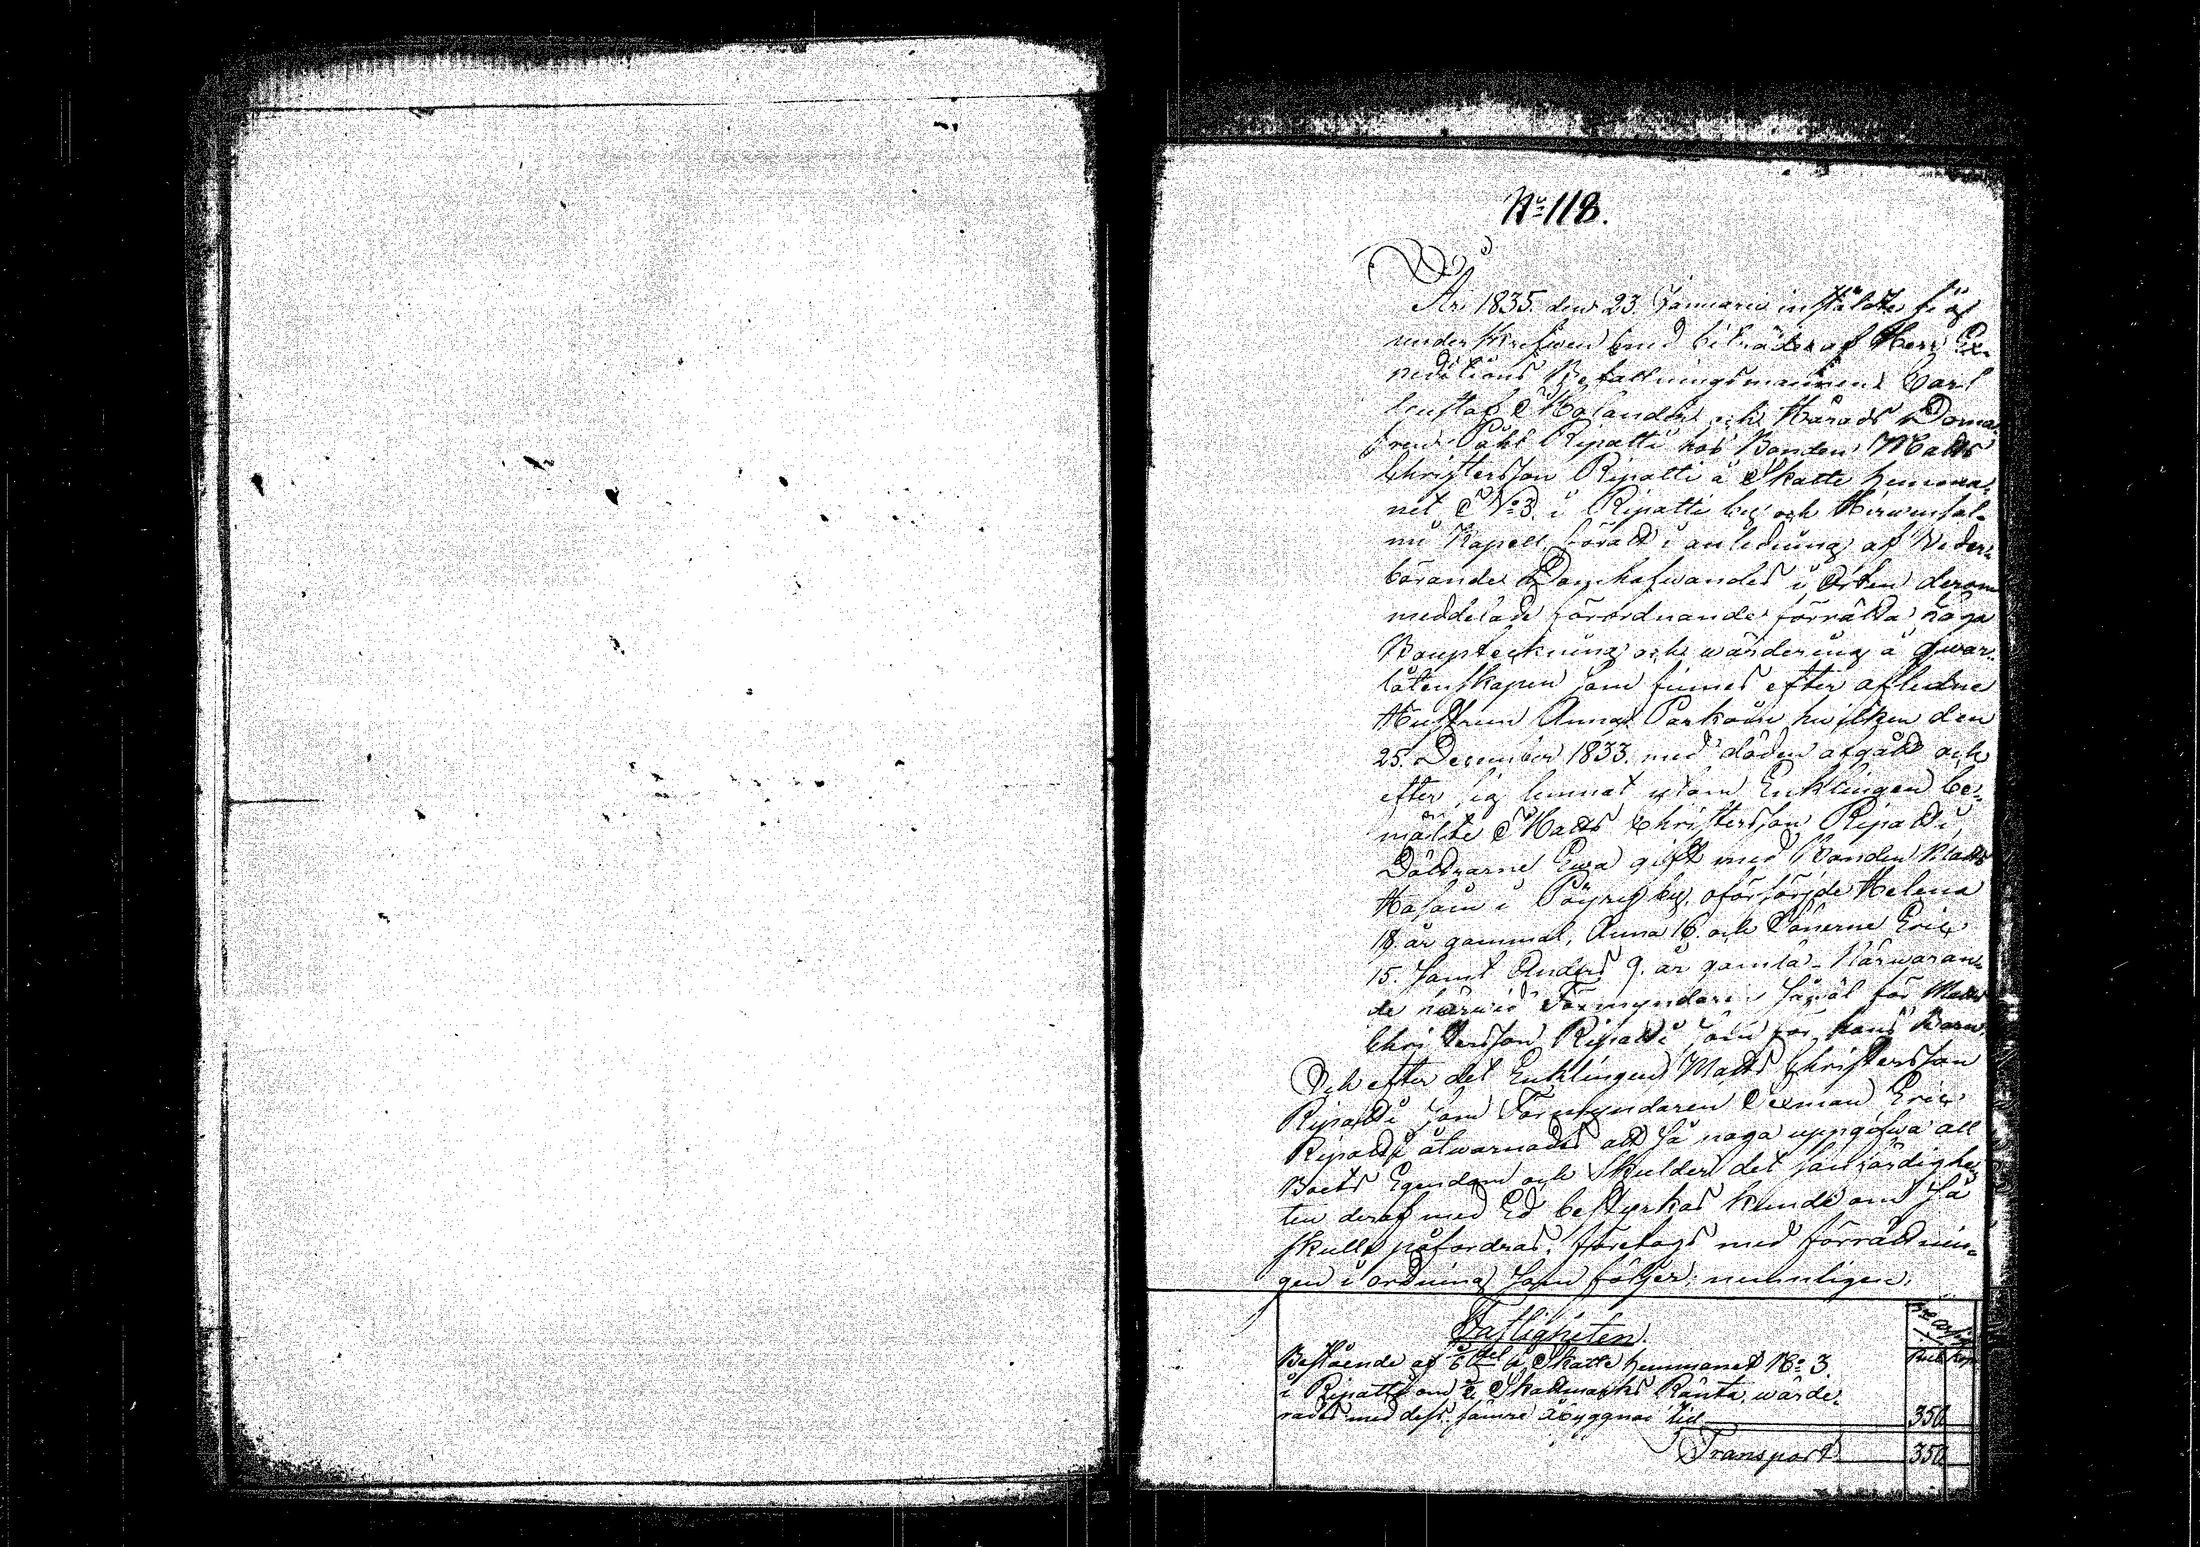 No 118.
År 1835. den 23. Januarii instälte sig
underskrifwen med biträde af Herr Ex-
peditions Befallningsmannen Carl
Gustaf Molander och Härads Doma-
ren Påhl Ripatti hos Bonden Matts
Christersson Ripatti å Skatte hemma-
net No 3. i Ripatti by och Hirwensal-
mi Kapell, för att i anledning af Weder-
börande Domhafwandes i Orten derom
meddelade förordnande förrätta laga
Bouptekning och wärdering å qwar-
låtenskapen som finnes efter aflidne
Hustrun Anna Parkoin hwilken den
25. December 1833. med döden afgått och
efter sig lemnat utom Enklingen be-
mälte Matts Christersson Ripatti,
Döttrarne Ewa gift med Bonden Matts
i Pöyry by, oförsörjde Helena
18. år gammal, Anna 16. och Sönerne Eric
15. samt Anders 9. år gamla. Närwaran-
de härwid Förmyndaren såväl för Matts
Christersson Ripatti som för hans Barn.
Och efter det Enklingen Matts Christersson
Ripatti som Förmyndaren Sexman Eric
Ripatti åtwarnades att så noga uppgifwa all
Boets Egendom och Skulder det sanfärdighe-
ten deraf med Ed bestyrkas kunde om så
skulle påfordras, företogs med förrättnin-
gen i ordning som följer, nemnligen.
Fastigheten.
Rub. Kop.
Bestående af del i Skatte hemmanet No 3.
i Ripatti om Skattmarks Ränta, wärde-
rades med dess sämre åbyggnad till 350
Transport 350